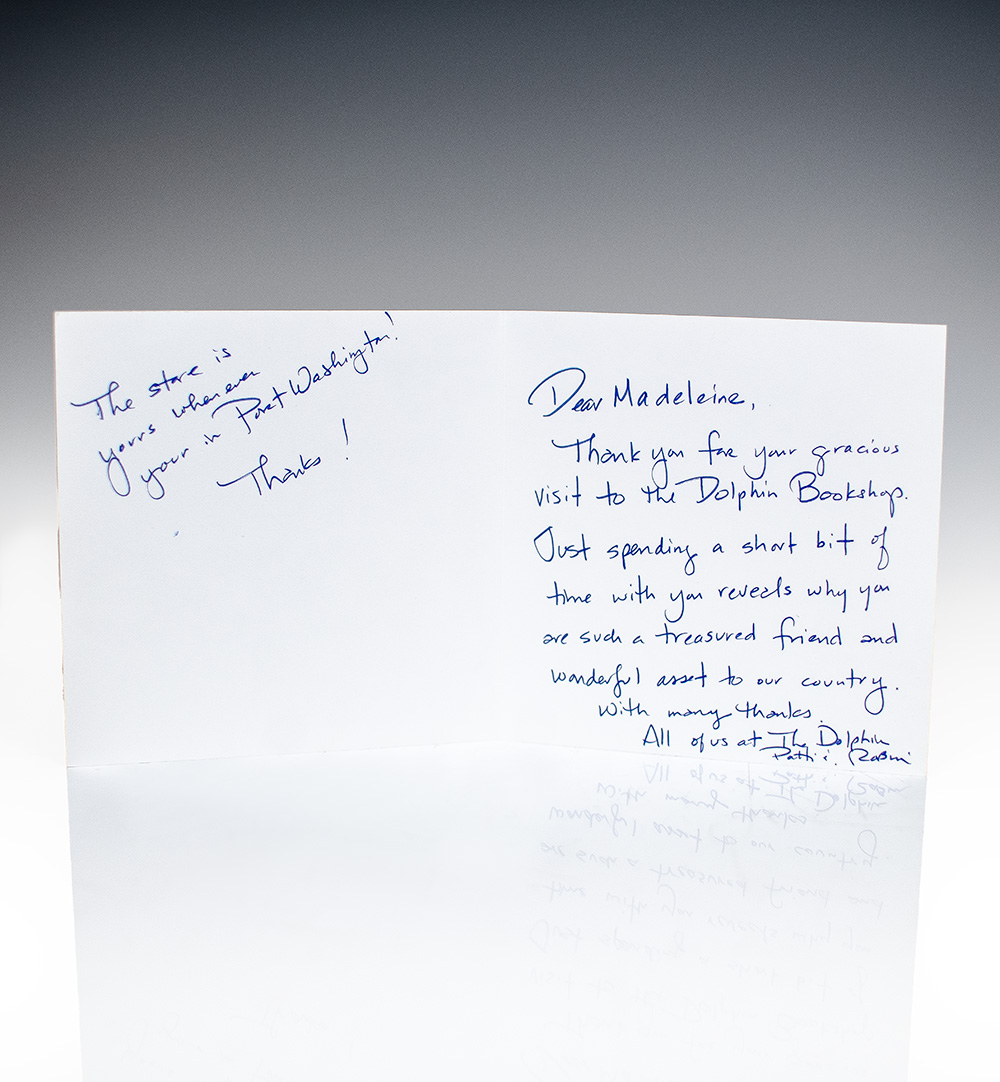 The store is
yours whenever
your in Port Washington!
Thanks!
Dear Madeleine,
Thank you for your gracious
visit to the Dolphin Bookshop.
Just spending a short bit of
time with you reveals why you
are such a treasured friend and
wonderful asset to our country.
With many thanks.
All of us at The Dolphin
Patti